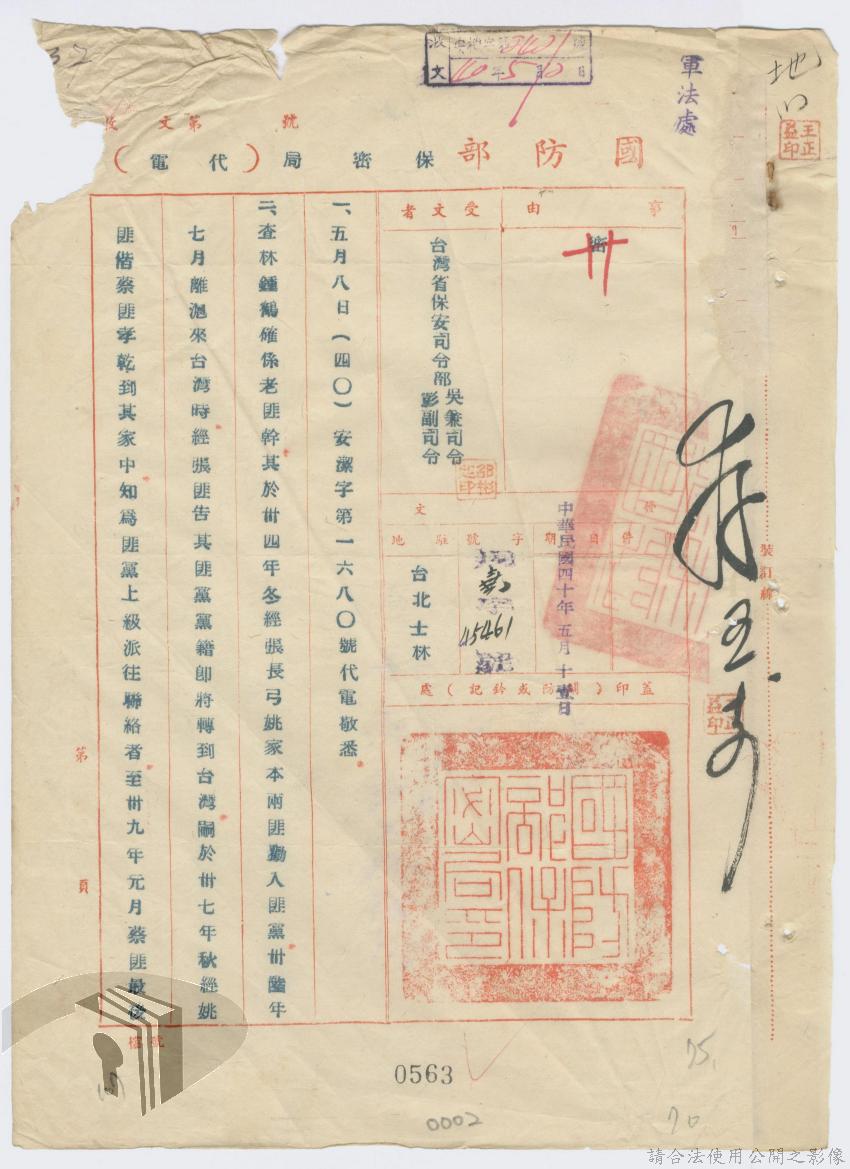 37
收文
40年5月10日
軍法處
王正益印
收文第號
國防部保密局（代電）
事由
密
受文者
台灣省保安司令部吳兼司令
彭副司令
中華民國四十年五月十壹日
駐地
台北士林
字號
45461
蓋印（關防或鈐記）處
國防部保密局印
一、五月八日（四〇）安潔字第一六八〇號代電敬悉
二、查林鍾鶴確係老匪幹其於卅四年冬經張長弓姚家本兩匪勷入匪黨卅陸年
七月離滬來台灣時經張匪告其匪黨黨籍卽將轉到台灣嗣於卅七年秋經姚
匪偕蔡匪孝乾到其家中知爲匪黨上級派往聯絡者至卅九年元月蔡匪最後
第頁
裝訂線
號檔
0563
0002
75.
70
請合法使用公開之影像